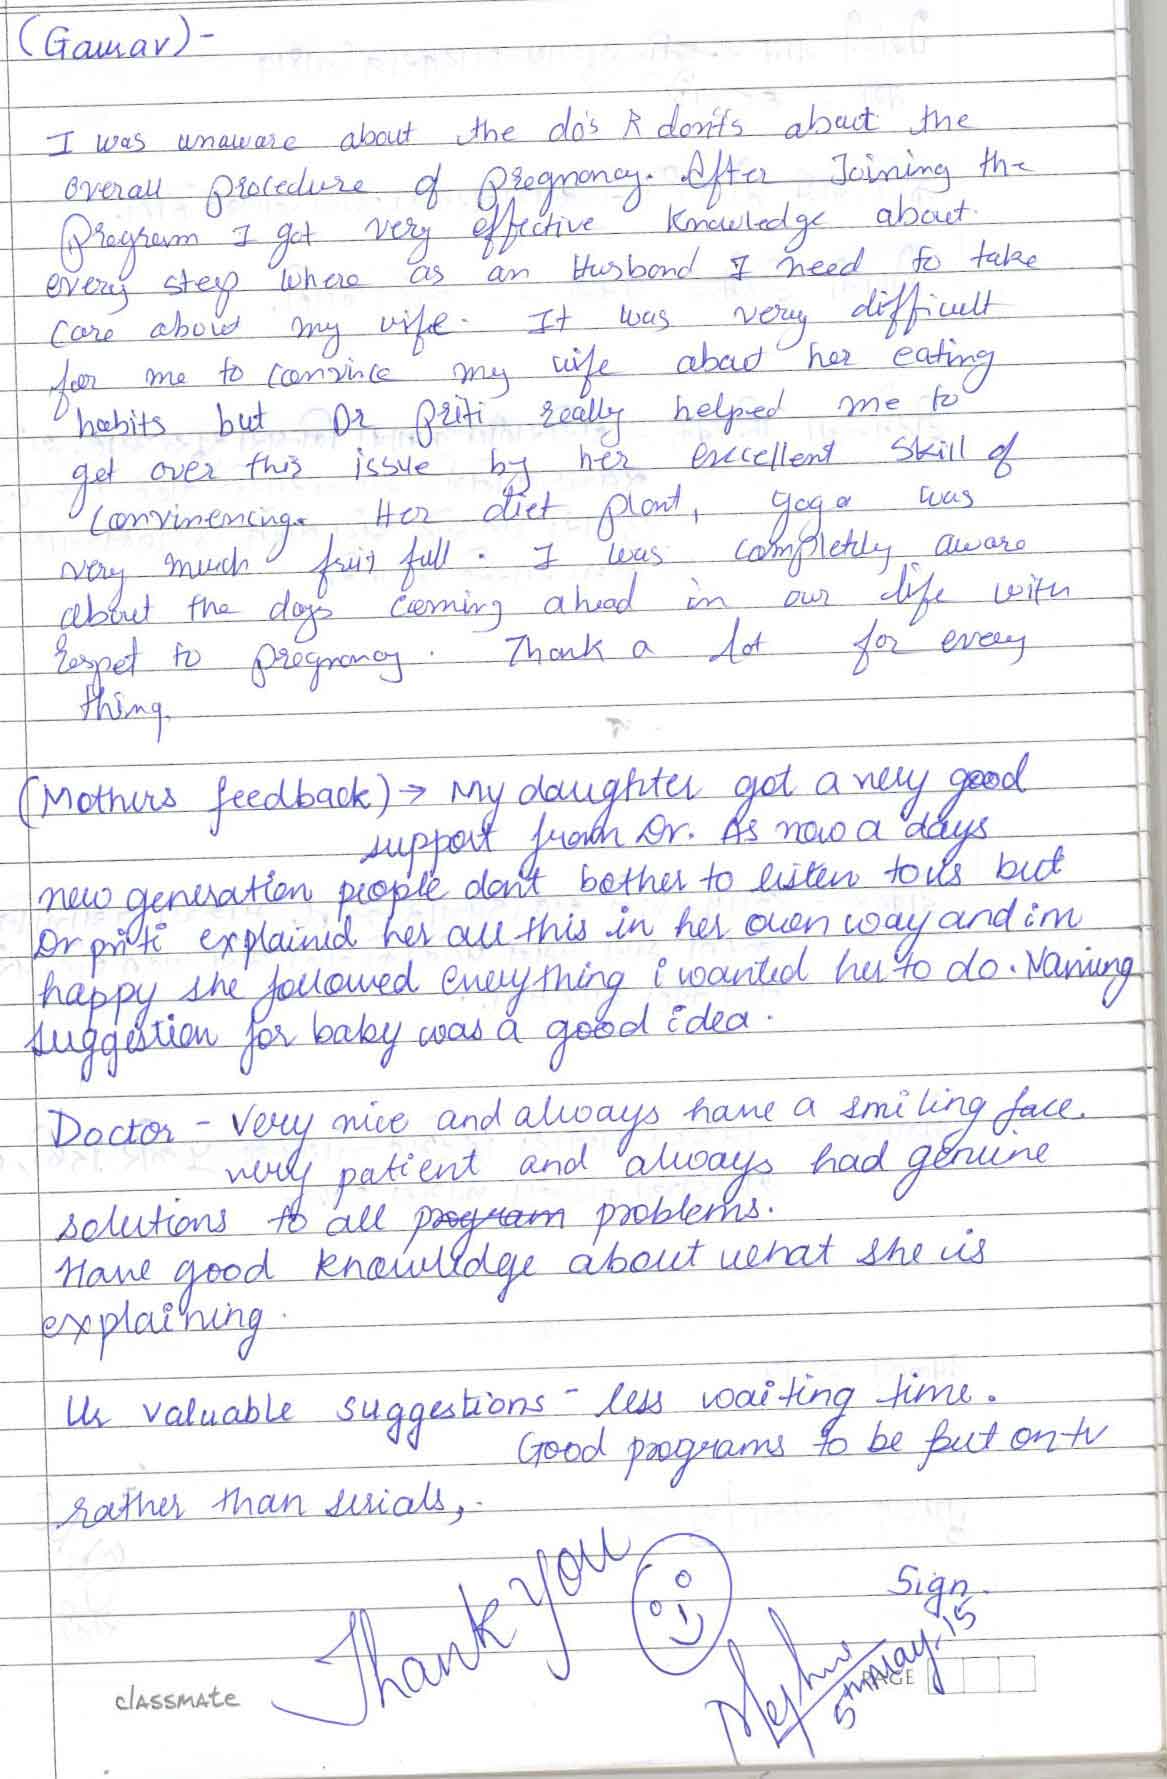 (Gaurav) -
I was unaware about the do's & don'ts about the
overall procedure of pregnancy. After Joining the
Program I got very effective knowledge about
every step where as an Husband I need to take
care about my wife. It was very difficult
for me to convince my wife about her eating
habits but Dr Priti really helped me to
get over this issue by her excellent skill of
convinencing. Her diet plant, yoga was
very much fruit full. I was completely aware
about the days coming ahead in our life with
respet to pregnancy. Thank a lot for every
thing.
(Mothers feedback) → My daughter got a very good
support from Dr. As now a days
new generation people dont bother to listen to us but
Dr priti explained her all this in her own way and im
happy she followed everything i wanted her to do. Naming
suggestion for baby was a good idea.
Doctor - Very nice and always have a smiling face.
very patient and always had genuine
solutions to all program problems.
Have good knowledge about what she is
explaining.
Ur valuable suggestions - less waiting time.
Good programs to be put on tv
rather than serials,.
Thank You
Sign.
5th May. 15
classmate
PAGE